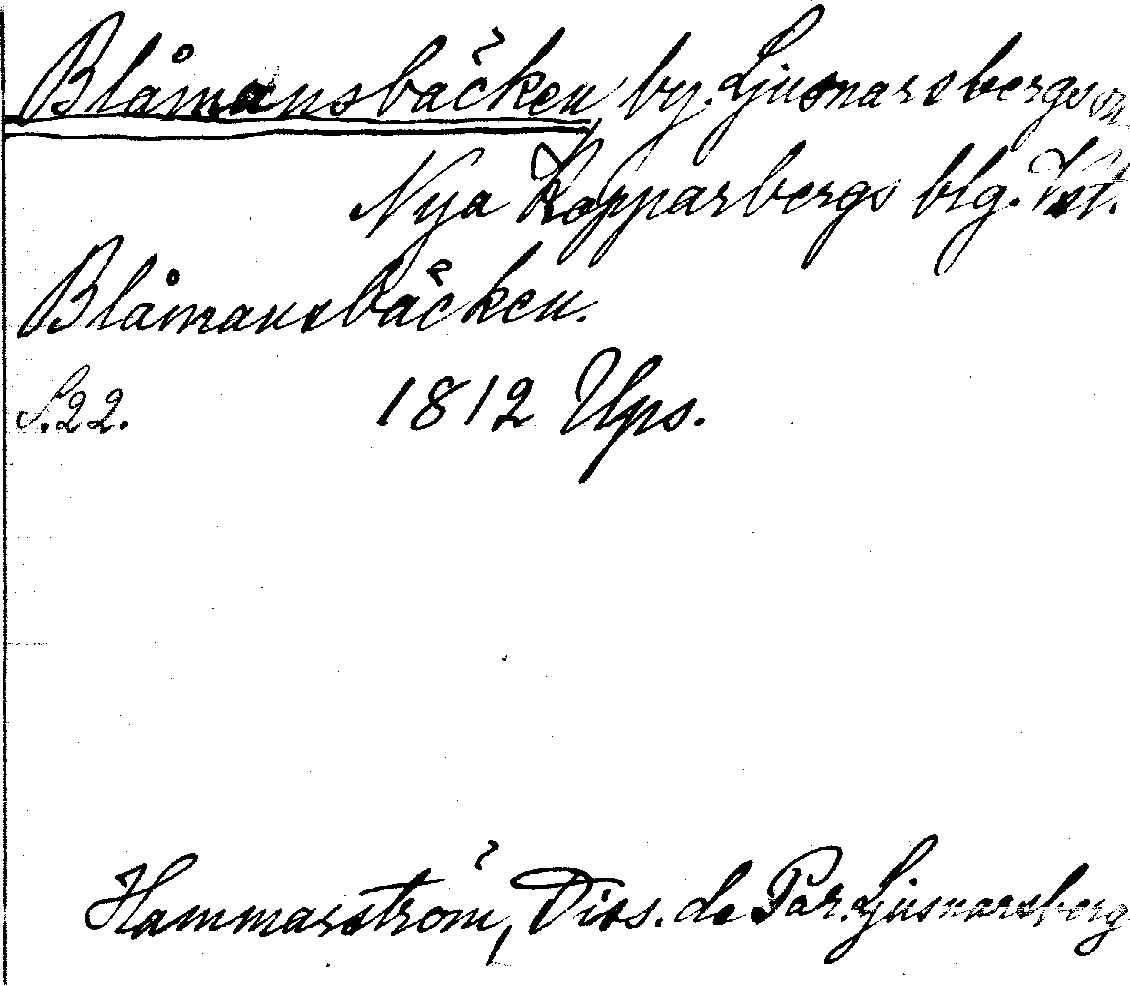 Blåmansbäcken, by, Ljusnarsbergs sn
Nya Kopparbergs blg. Vstm.
Blåmansbäcken.
S. 22. 1812 Ups.
Hammarström, Diss. de Par. Ljusnarsberg